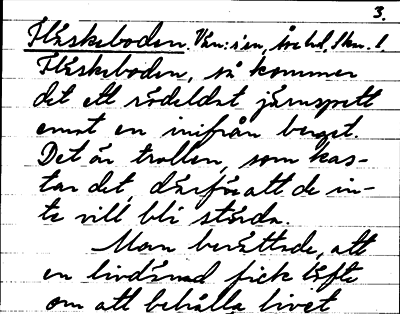 3.
Fläskeboden.
Fläskeboden, så kommer
det ett rödeldat järnspett
emot en inifrån berget.
Det är trollen, som kas-
tar det, därför att de in-
te vill bli störda.
Man berättade, att
en livdömd fick löfte
om att behålla livet